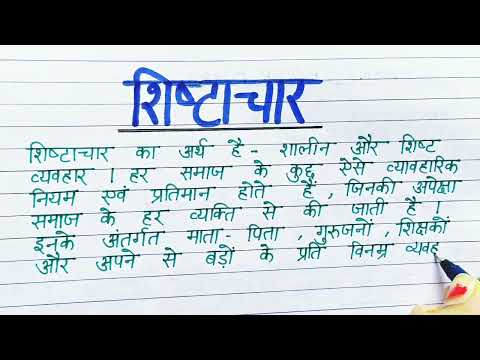 शिष्टाचार
शिष्टाचार का अर्थ है - शालीन और शिष्ट
व्यवहार । हर समाज के कुछ ऐसे व्यावहारिक
नियम एवं प्रतिमान होते हैं , जिनकी अपेक्षा
समाज के हर व्यक्ति से की जाती है ।
इनके अंतर्गत माता - पिता , गुरुजनों , शिक्षकों
और अपने से बड़ों के प्रति विनम्र व्यवह